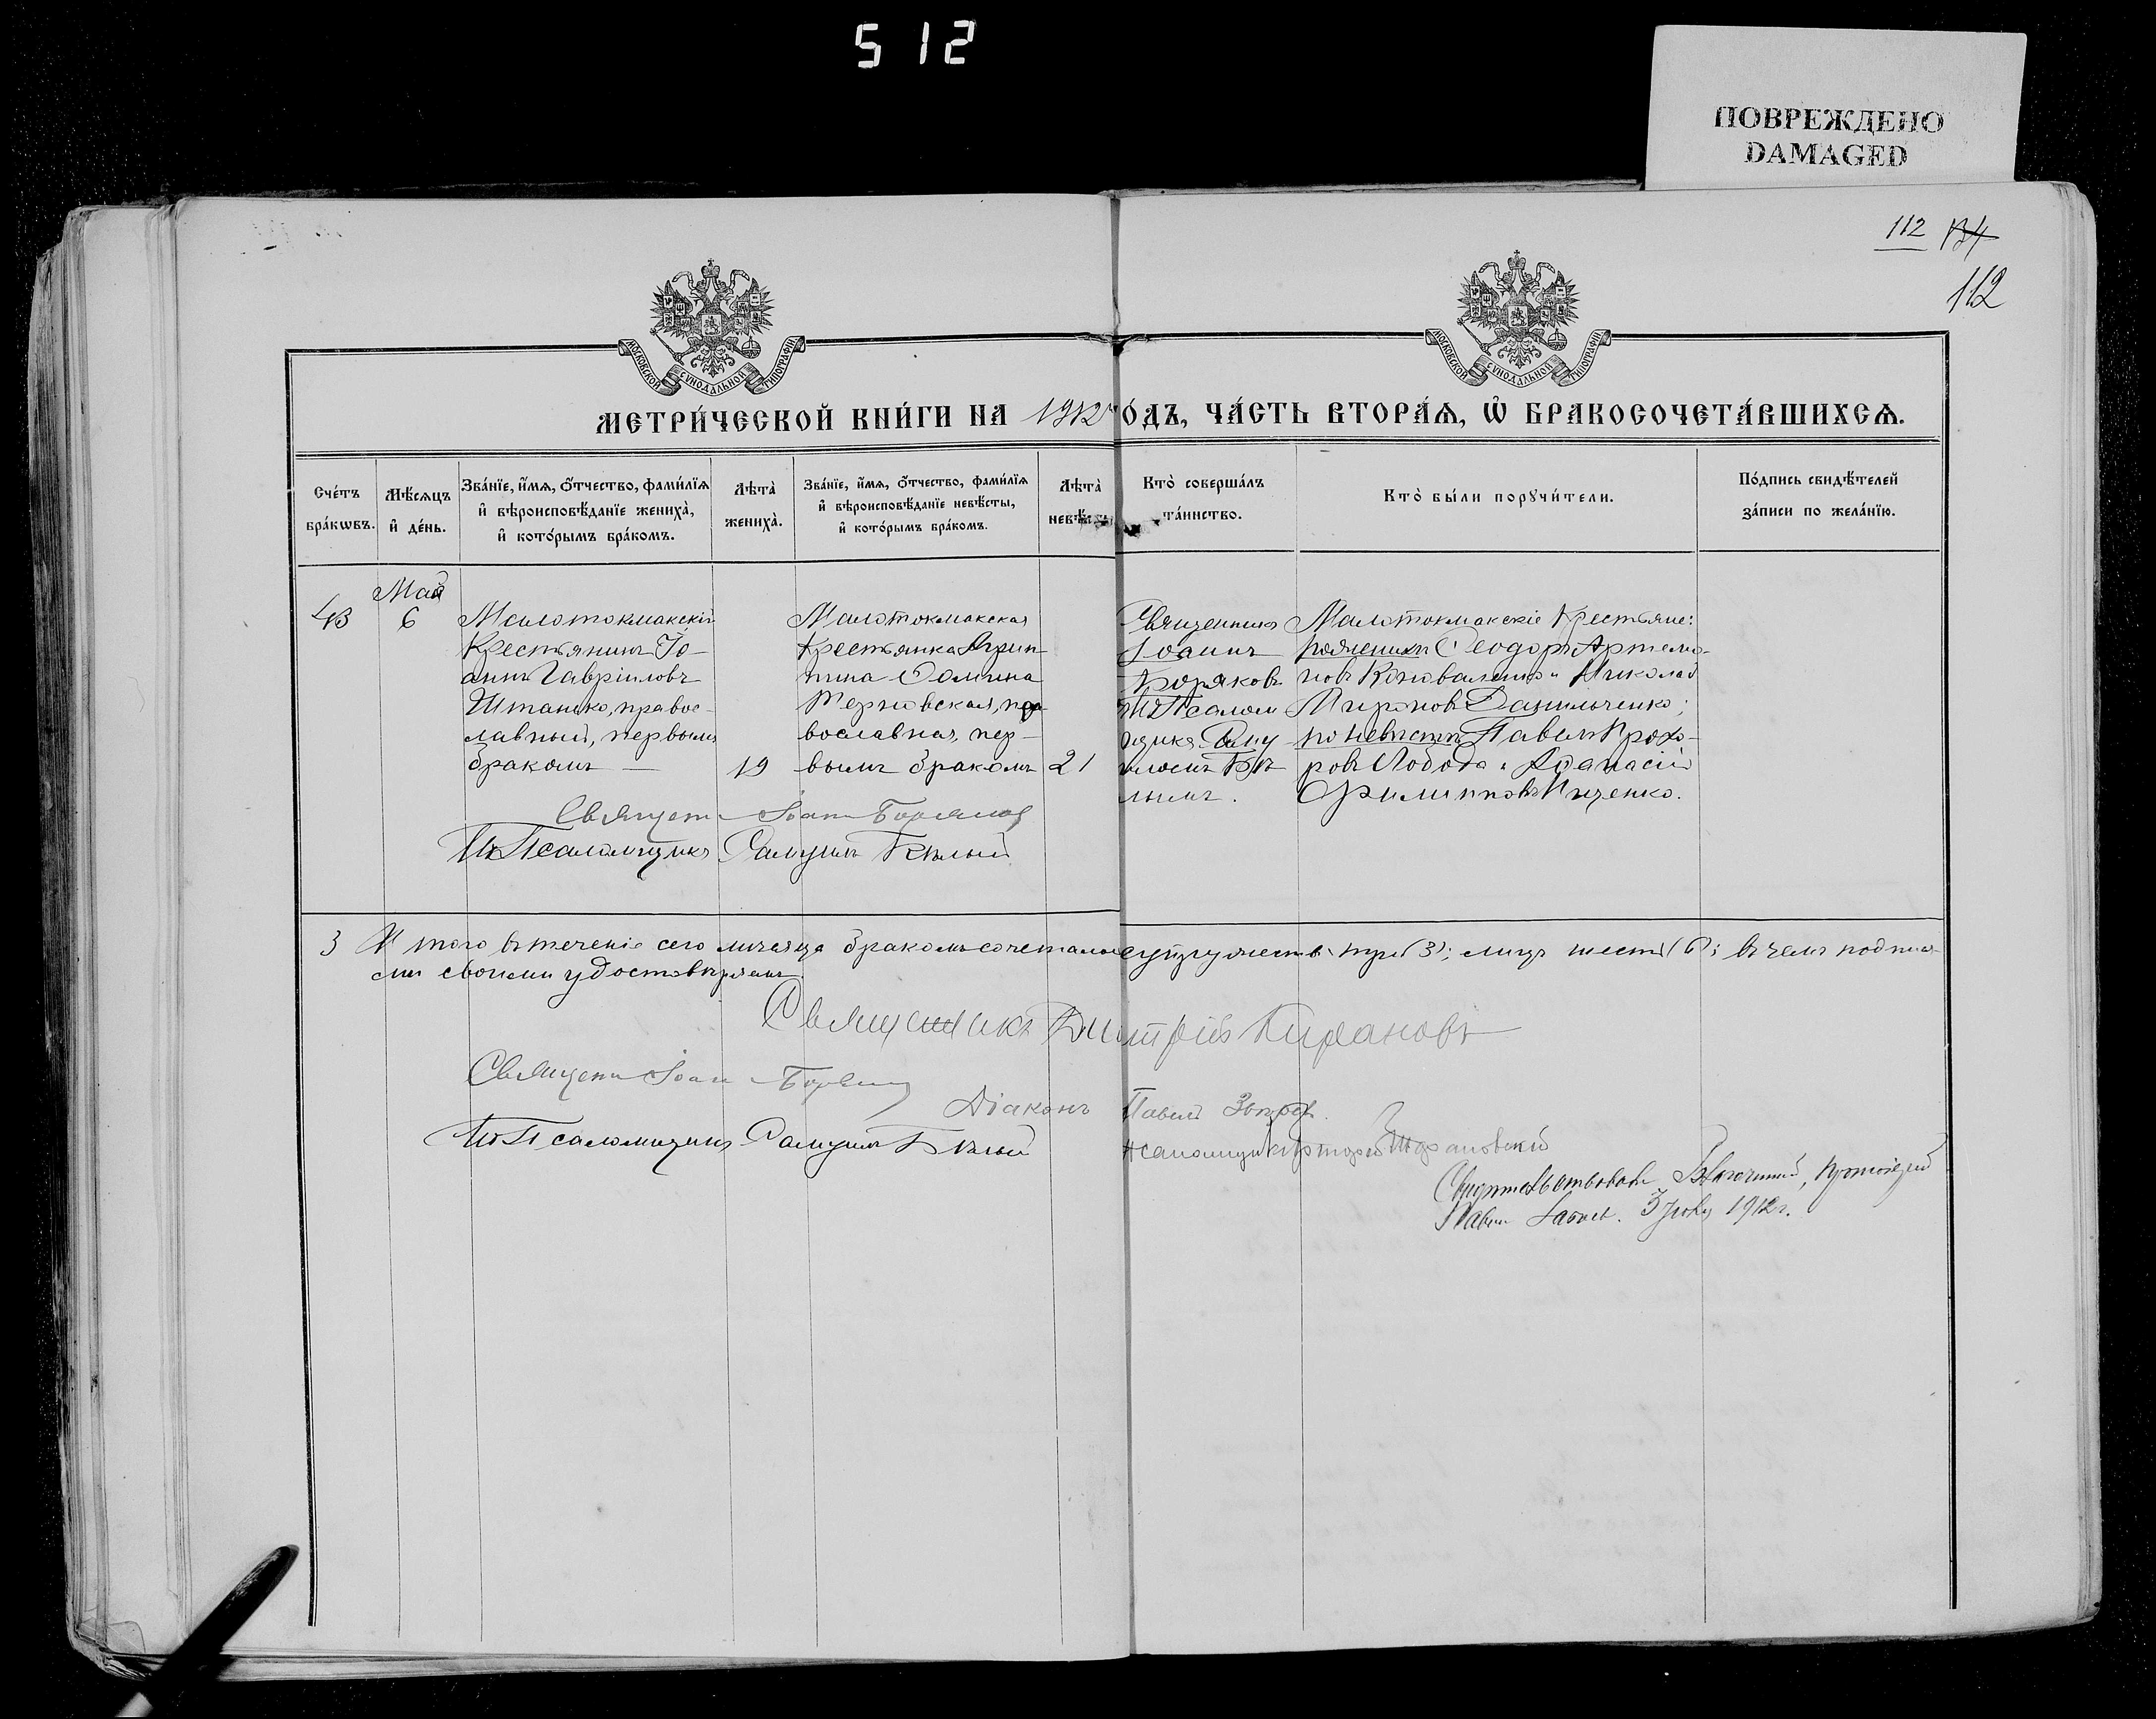 512
ПОВРЕЖДЕНО
DAMAGED
112 134
112
МОСКОВСКОЙ СѴНОДАЛЬНОЙ ТИПОГРАФІИ
МОСКОВСКОЙ СѴНОДАЛЬНОЙ ТИПОГРАФІИ
МЕТРИ́ЧЕСКОЙ КНИ́ГИ НА 1912 ГО́ДЪ, ЧА́СТЬ ВТОРА́Ѧ, Ѡ БРАКОСОЧЕТА́ВШИХСѦ.
Сче́тъ
бра́кωвъ.
Мѣ́сяцъ
и҆ де́нь.
Зва́нїе, и҆́мѧ, о҆́тчество, фами́лїѧ
и҆ вѣроисповѣ́данїе жениха̀,
и҆ кото́рымъ бра́комъ.
Лѣта̀
жениха̀.
Зва́нїе, и҆́мѧ, о҆́тчество, фами́лїѧ
и҆ вѣроисповѣ́данїе невѣ́сты,
и҆ кото́рымъ бра́комъ.
Лѣта̀
невѣ́сты
Кто̀ соверша́лъ
та́инство.
Кто̀ бы́ли порꙋчи́тели.
По́дпись свидѣ́телей
за́писи по жела́нїю.
43
Май
6
Малотокмакскій
Крестьянинъ Іо-
аннъ Гавріиловъ
Штанько, правос-
лавный, первымъ
бракомъ —
19
Малотокмакская
Крестьянка Агрип-
пина Ѳомина
Терновская, пра-
вославная, пер-
вымъ бракомъ
21
Священникъ
Іоаннъ
Боряковъ
съ Псалом
щикъ Саму
иломъ Бѣ
лымъ.
Малотокмакскіе Крестьяне:
по женихѣ Ѳеодоръ Артемо-
новъ Коноваленко и Николай
Мироновъ Данильченко;
по невѣстѣ Павелъ Прохо-
ровъ Лобода и Аѳанасій
Филипповъ Ищенко.
Священ Іоан Боряков
И. Псаломщикъ Самуилъ Бѣлый
3 Итого въ теченіе сего мѣсяца бракомъ сочеталось супружествъ три (3); лицъ шесть (6); въ чемъ подпися-
ми своими удостовѣряемъ.
Священникъ Димитрій Кирановъ
Священн Іоан Боряков
Діаконъ Павелъ
И. Псаломщикъ Самуилъ Бѣлый
Псаломщикъ
Свидѣтельствовалъ Благочинный, Протоіерей
Павел 1912 г.